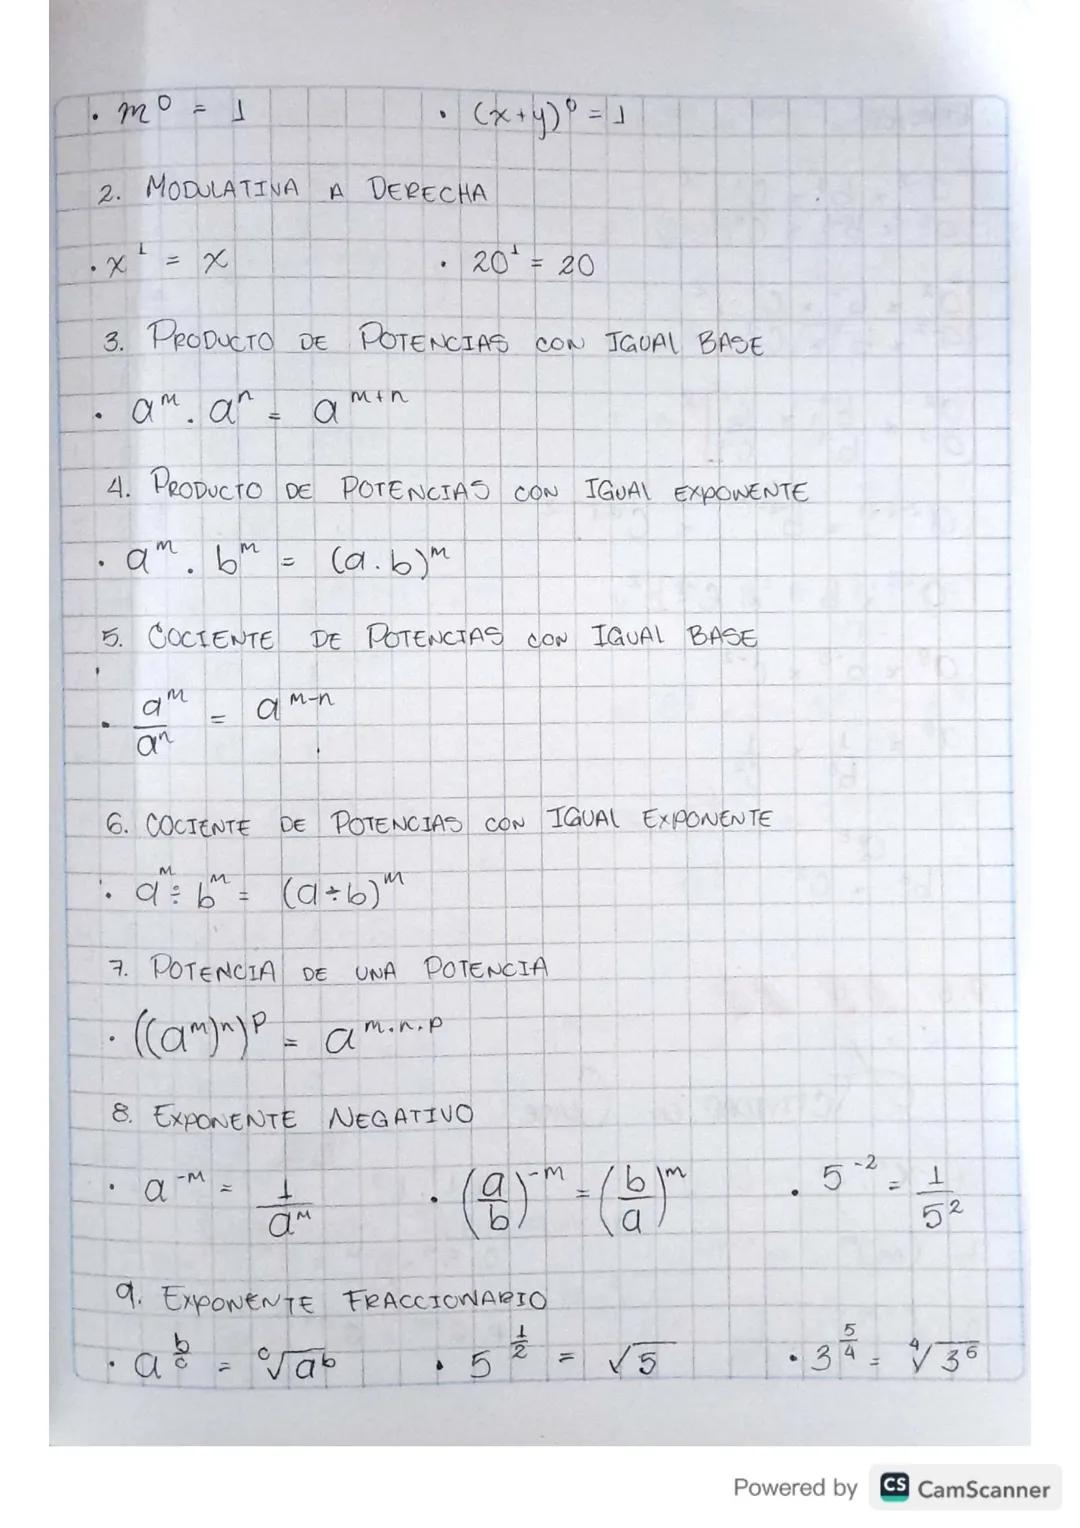 • m⁰ = 1 • (x+y)⁰ = 1
2. MODULATIVA A DERECHA
• x¹ = x • 20¹ = 20
3. PRODUCTO DE POTENCIAS CON IGUAL BASE
• aᵐ . aⁿ = aᵐ⁺ⁿ
4. PRODUCTO DE POTENCIAS CON IGUAL EXPONENTE
• aᵐ . bᵐ = (a.b)ᵐ
5. COCIENTE DE POTENCIAS CON IGUAL BASE
• aᵐ/aⁿ = aᵐ⁻ⁿ
6. COCIENTE DE POTENCIAS CON IGUAL EXPONENTE
• aᵐ ÷ bᵐ = (a÷b)ᵐ
7. POTENCIA DE UNA POTENCIA
• ((aᵐ)ⁿ)ᵖ = a^(m.n.p)
8. EXPONENTE NEGATIVO
• a⁻ᵐ = 1/aᵐ • (a/b)⁻ᵐ = (b/a)ᵐ • 5⁻² = 1/5²
9. EXPONENTE FRACCIONARIO
• a^(b/c) = ᶜ√aᵇ • 5^(1/2) = √5 • 3^(5/4) = ⁴√3⁵
Powered by CS CamScanner